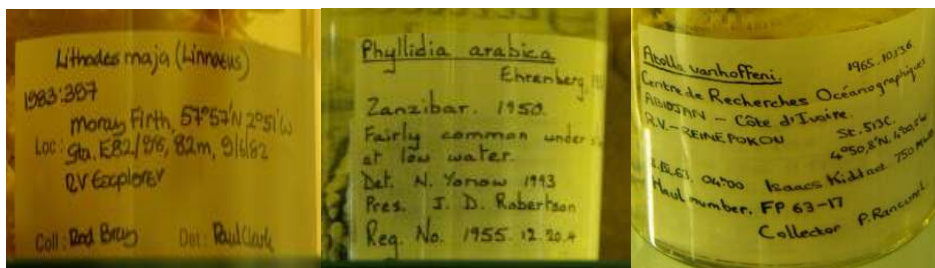 Lithodes maja (Linnaeus)
1983:397
Moray Firth, 57°57'N 2°51'W
Loc: Sta. E82/9/6, 82m, 9/6/82
RV Explorer
Coll: Rod Bray Det: Paul Clark
Phyllidia arabica
Ehrenberg,
Zanzibar. 1950.
Fairly common under
at low water.
Det. N. Yonow 1993
Pres. J. D. Robertson
Reg. No. 1955.12.20.4
Atolla vanhoffeni.
1965.10.13.6
Centre de Recherches Océanographiques
ABIDJAN - Côte d'Ivoire.
R.V. - REINE POKOU St. 513C.
4°50,8'N.
63, 04:00 Isaacs Kidd
Haul number. FP 63-17
Collector P.